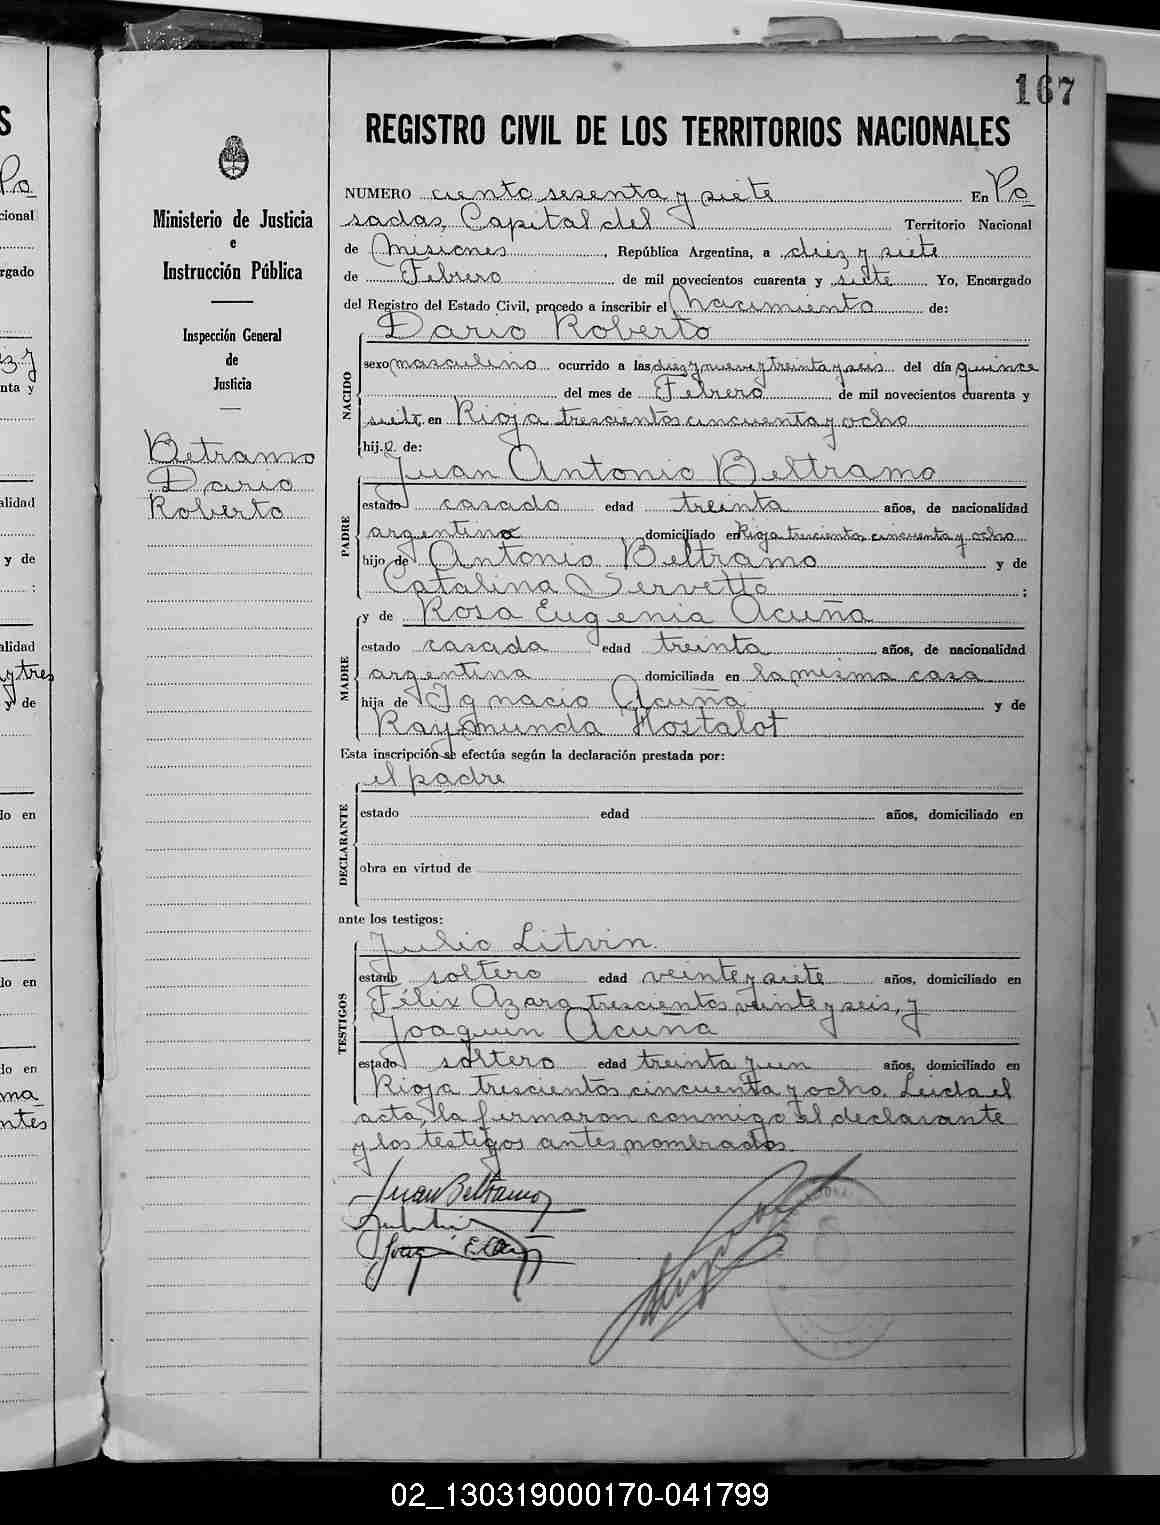 167
REGISTRO CIVIL DE LOS TERRITORIOS NACIONALES
Ministerio de Justicia
e
Instrucción Pública
Inspección General
de
Justicia
Betramo
Dario
Roberto
NUMERO ciento sesenta y siete En Po
sadas, Capital del Territorio Nacional
de Misiones, República Argentina, a diez y siete
de Febrero de mil novecientos cuarenta y siete Yo, Encargado
del Registro del Estado Civil, procedo a inscribir el Nacimiento de:
Dario Roberto
NACIDO
sexo masculino ocurrido a las diez y nueve y treinta y seis del día quince
del mes de Febrero de mil novecientos cuarenta y
siete, en Rioja trescientos cincuenta y ocho
hijo de:
Juan Antonio Beltramo
PADRE
estado casado edad treinta años, de nacionalidad
argentina domiciliado en Rioja trescientos cincuenta y ocho
hijo de Antonio Beltramo y de
Catalina Servetto ;
y de Rosa Eugenia Acuña
MADRE
estado casada edad treinta años, de nacionalidad
argentina domiciliada en la misma casa
hija de Ignacio Acuña y de
Raymunda Hostalot
Esta inscripción se efectúa según la declaración prestada por:
el padre
DECLARANTE
estado edad años, domiciliado en
obra en virtud de
ante los testigos:
Julio Litvin
TESTIGOS
estado soltero edad veinte y siete años, domiciliado en
Félix Azara trescientos veinte y seis, y
Joaquin Acuña
estado soltero edad treinta y un años, domiciliado en
Rioja trescientos cincuenta y ocho. Leida el
acta, la firmaron conmigo el declarante
y los testigos antes nombrados.
Juan Beltramo
02_130319000170-041799